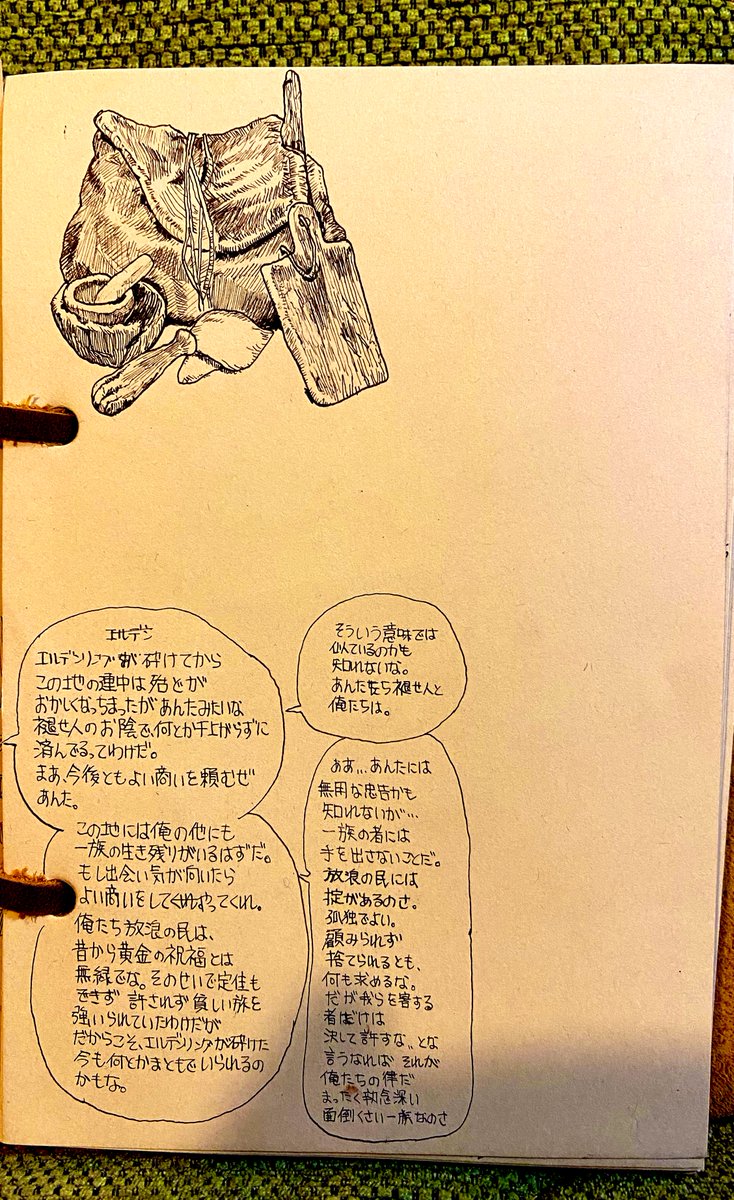 エルデン
エルデンリングが砕けてから
この地の連中は殆どが
おかしくなっちまったがあんたみたいな
褪せ人のお陰で、何とか干上がらずに
済んでるってわけだ。
まあ、今後ともよい商いを頼むぜ
あんた。
この地には俺の他にも
一族の生き残りがいるはずだ。
もし出会い気が向いたら
よい商いをしてくれ。
俺たち放浪の民は、
昔から黄金の祝福とは
無縁でな。そのせいで定住も
できず 許されず貧しい旅を
強いられていたわけだが
だからこそ、エルデンリングが砕けた
今も何とかまともでいられるの
かもな。
そういう意味では
似ているのかも
知れないな。
あんたたち褪せ人と
俺たちは。
ああ…あんたには
無用な忠告かも
知れないが…
一族の者には
手を出さないことだ。
放浪の民には
掟があるのさ。
孤独でよい。
顧みられず
捨てられるとも、
何も求めるな。
だが我らを害する
者だけは
決して許すな〟とな
言うなれば それが
俺たちの律だ
まったく執念深い
面倒くさい一族なのさ